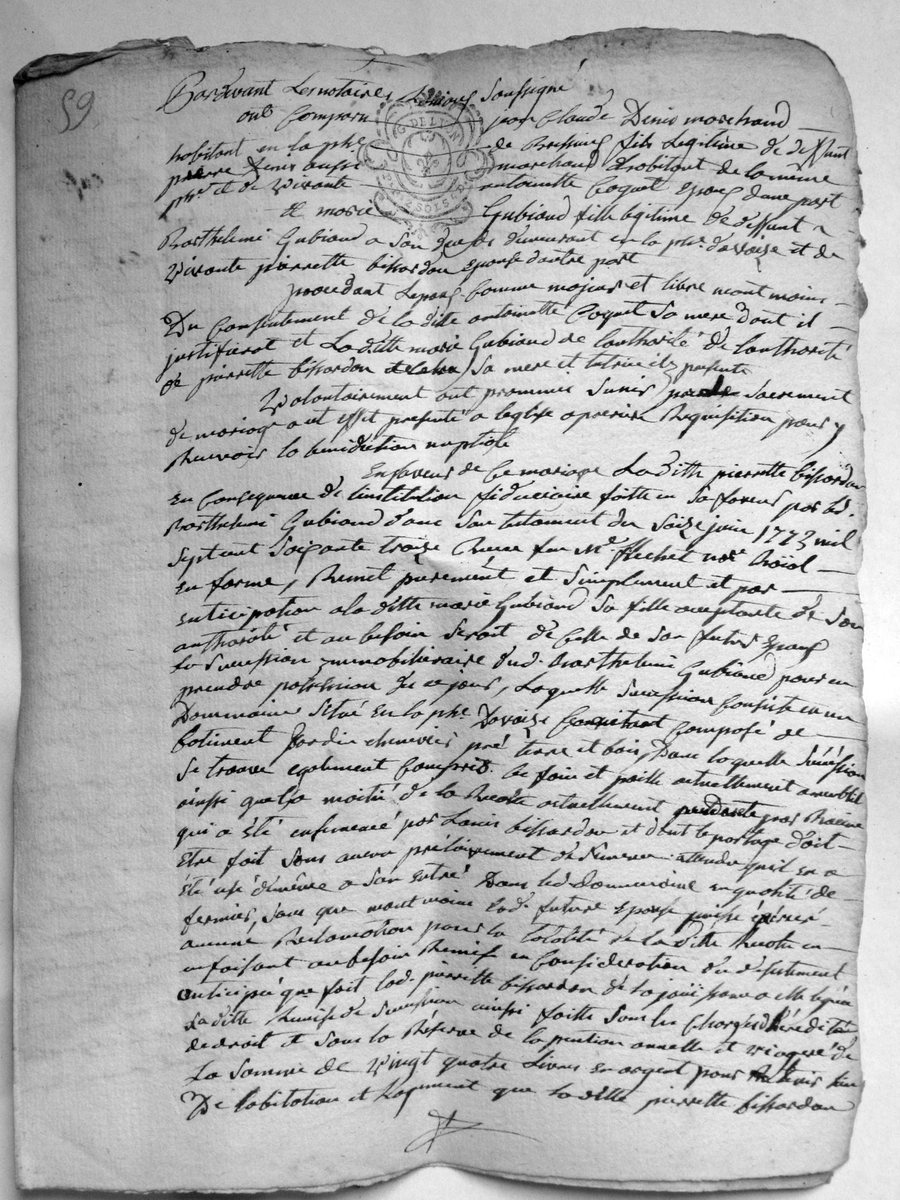 59
Pardevant Les notaires Roiaux Soussigné
ont Comparu jean Claude Denis marchand
habitant en la phe de Bussieres fils Legitime de deffunt
pierre Denis aussi marchand et habitant de la même
phe et de vivante antoinette Coquet Epoux d'une part
G DE LYON
2 SOLS
et marie Gubiand fille legitime de deffunt
Barthelemi Gubiand a Son demeurant en la phe d'avaize et de
vivante pierrette bissardon epouse d'autre part
procedant Lepoux comme majeur et libre neant moins
Du Consentement de la ditte antoinette Coquet Sa mere dont il
justifierat et La ditte marie Gubiand de l'authorité de l'authorité
de pierrette bissardon Sa mere et tutrice icy presente
Volontairement ont prommis Sunir par le Sacrement
de mariage a cet effet presenté a leglise a premiere Requisition pour y
Recevoir la benediction nuptiale
En faveur de Ce mariage La ditte pierrette bissardon
En Consequence de l'institution fiduciaire faitte en Sa faveur par led.
Barthelemi Gubiand dans Son testament du Saize juin 1773 mil
Sept cent Soixante treize Recu par Me flechet nore Roial
en forme, Remet purement et Simplement et par
enticipation a la ditte marie Gubiand Sa fille acceptante de Son
authorité et au besoin Serait de Celle de Son futur Epoux
la Succession immobiliaire dud. Barthelemi Gubiand pour en
prendre possession de ce jour, Laquelle Succession Consiste en un
Dommaine Situé En la phe Davaize Composé de
batiment jardin chenevier pré terre et bois, Dans laquelle Succession
Se trouve egalement Compris le foin et paille actuellement
ainsi que la moitié de la Recolte actuellement pendante par Racine
qui a été enfemencé par Louis bissardon et dont le partage doit
Etre fait Sans aucun prélevement de Semence attendu quil en a
été usé de même a Son entré Dans led. dommaine en qualité de
fermier, Sans que neant moins lad. future epouse puisse
aucune Reclamation pour la totalité de la ditte Recolte en
en faisant au besoin Remise en Consideration du desistement
enticipé que fait lad. pierrette bissardon de La jouissance a elle
La ditte Remise de Succession ainsi faitte Sous les Charges d'hérédité
de droit et Sous la Réserve de la pention annuelle et viagere de
La Somme de Vingt quatre Livres En argent pour lieu
De labitation et Logement que la ditte pierrette bissardon